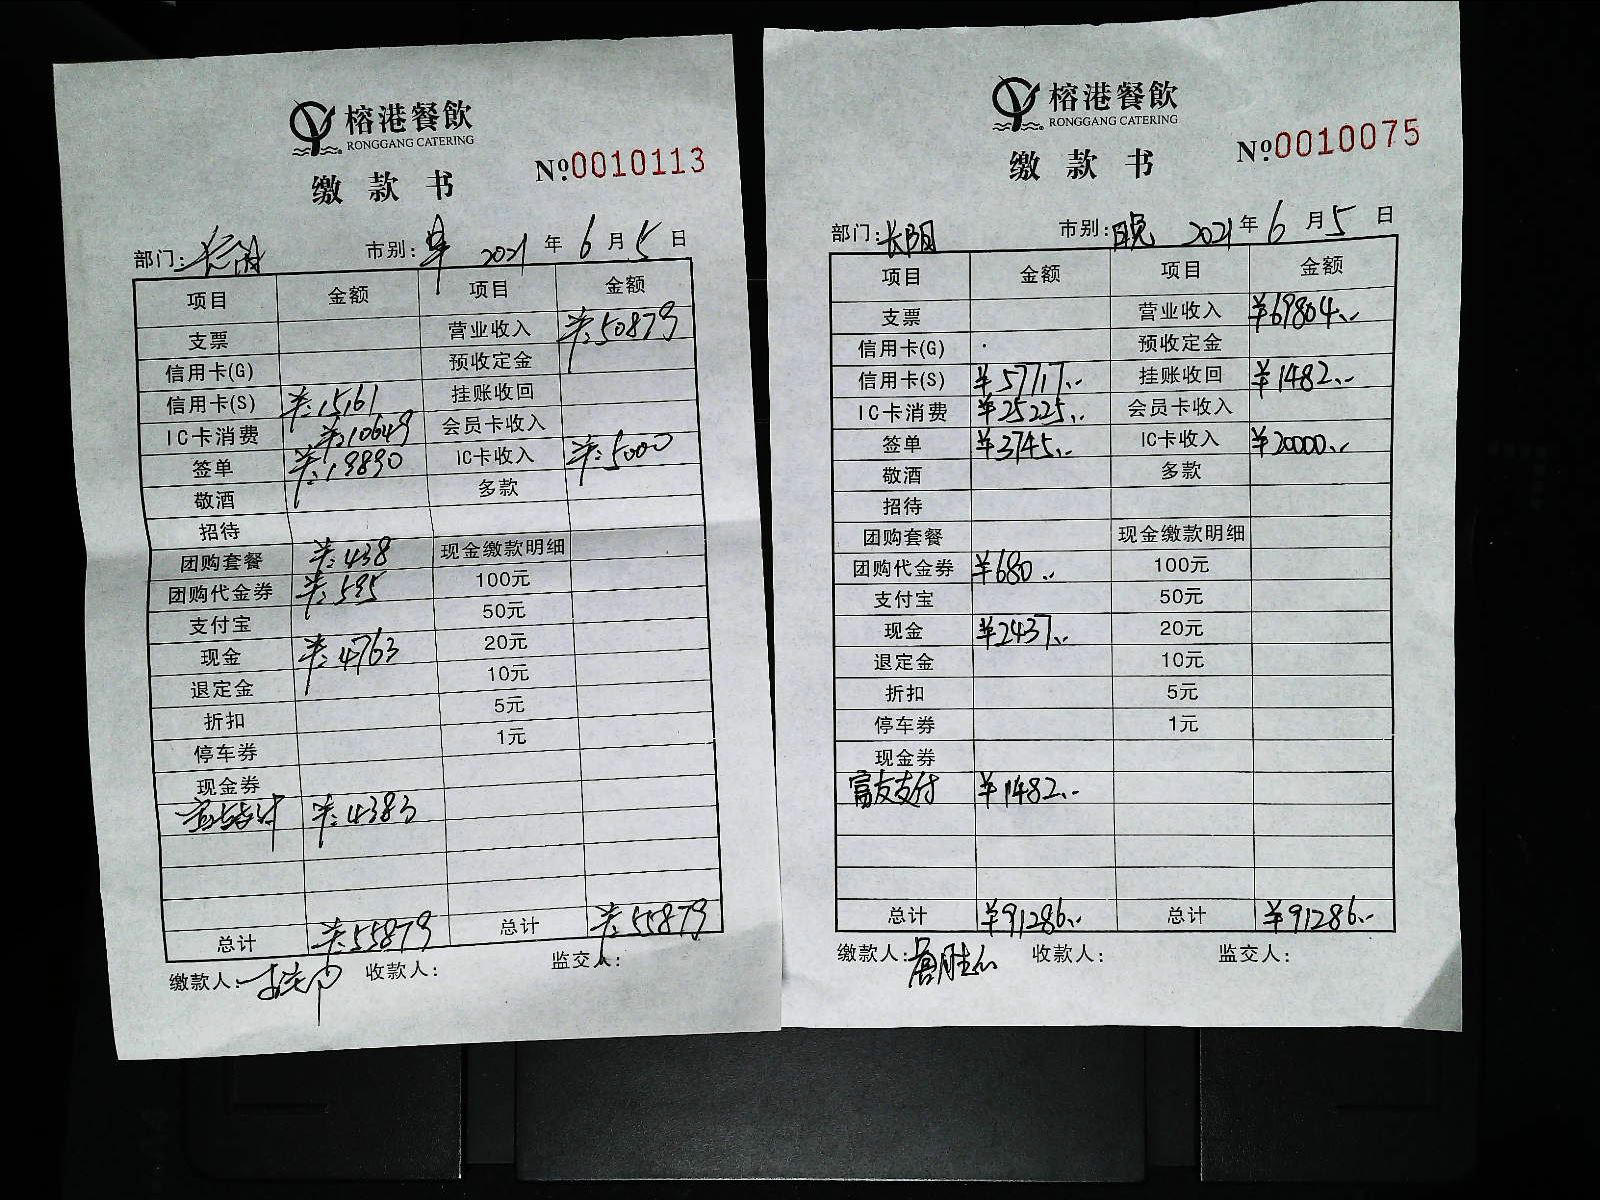 榕港餐飲
RONGGANG CATERING
缴款书
№0010113
部门: 市别: 早 2021年6月5日
项目 金额 项目 金额
支票 营业收入 ¥:50879
信用卡(G) 预收定金
信用卡(S) ¥:15161 挂账收回
IC卡消费 ¥:10649 会员卡收入
签单 ¥:19890 IC卡收入 ¥:5000
敬酒 多款
招待
团购套餐 ¥:438 现金缴款明细
团购代金券 ¥:595 100元
支付宝 50元
现金 ¥:4763 20元
退定金 10元
折扣 5元
停车券 1元
现金券
富友支付 ¥:4383
总计 ¥:55879 总计 ¥:55879
缴款人: 收款人: 监交人:
榕港餐飲
RONGGANG CATERING
缴款书
№0010075
部门: 市别: 晚 2021年6月5日
项目 金额 项目 金额
支票 营业收入 ¥69804..
信用卡(G) 预收定金
信用卡(S) ¥57717.. 挂账收回 ¥1482..
IC卡消费 ¥25225.. 会员卡收入
签单 ¥3745.. IC卡收入 ¥20000..
敬酒 多款
招待
团购套餐 现金缴款明细
团购代金券 ¥680.. 100元
支付宝 50元
现金 ¥2437.. 20元
退定金 10元
折扣 5元
停车券 1元
现金券
富友支付 ¥1482..
总计 ¥91286.. 总计 ¥91286..
缴款人: 收款人: 监交人: